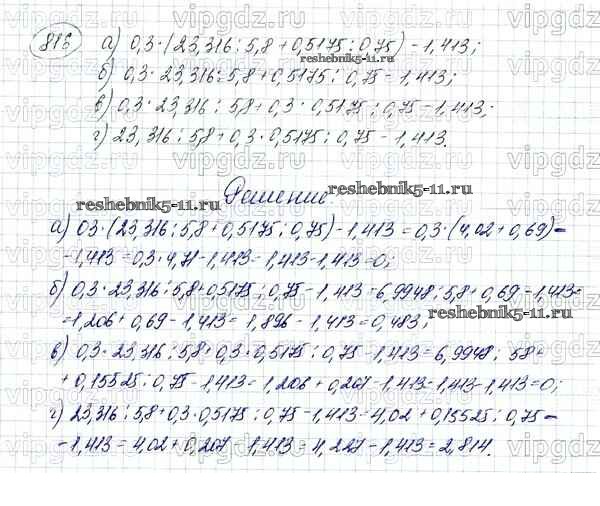 816 а) 0,3·(23,316:5,8+0,5175:0,75)-1,413;
б) 0,3·23,316:5,8+0,5175:0,75-1,413;
в) 0,3·23,316:5,8+0,3·0,5175:0,75-1,413.
г) 23,316:5,8+0,3·0,5175:0,75-1,413.
reshebnik5-11.ru
Решение. reshebnik5-11.ru
а) 0,3·(23,316:5,8+0,5175:0,75)-1,413=0,3·(4,02+0,69)-
-1,413=0,3·4,71-1,413=1,413-1,413=0;
б) 0,3·23,316:5,8+0,5175:0,75-1,413=6,9948:5,8+0,69-1,413=
=1,206+0,69-1,413=1,896-1,413=0,483;
reshebnik5-11.ru
в) 0,3·23,316:5,8+0,3·0,5175:0,75-1,413=6,9948:58+
+0,15525:0,75-1,413=1,206+0,207-1,413=1,413-1,413=0;
г) 23,316:5,8+0,3·0,5175:0,75-1,413=4,02+0,15525:0,75-
-1,413=4,02+0,207-1,413=4,227-1,413=2,814.
vipgdz.ru